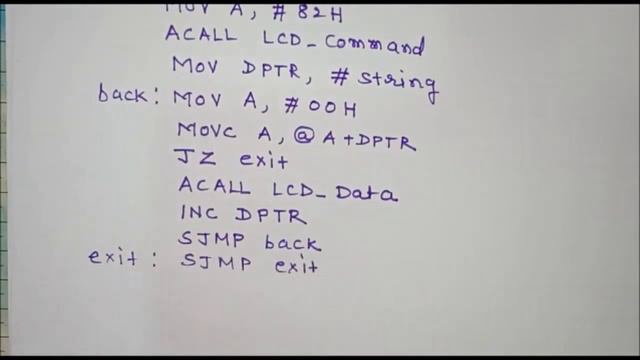 MOV A, #82H
ACALL LCD_Command
MOV DPTR, #string
back: MOV A, #00H
MOVC A, @A+DPTR
JZ exit
ACALL LCD_Data
INC DPTR
SJMP back
exit: SJMP exit